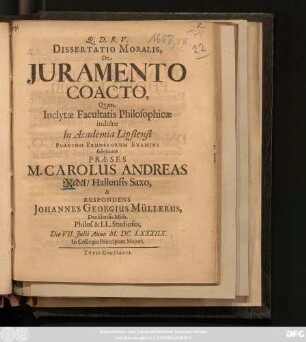 Q. D. B. V.
DISSERTATIO MORALIS,
De
JURAMENTO
COACTO,
Quam
Inclytæ Facultatis Philosophicæ
indultu
In Academia Lipsiensi
PLACIDO ERUDITORUM EXAMINI
submittent
PRÆSES
M. CAROLUS ANDREAS
Redel / Hallensis Saxo,
&
RESPONDENS
JOHANNES GEORGIUS MÜLLERUS,
Philos. & LL. Studiosus,
Die VII. Julii Anno M. DC. LXXXIIX.
In Collegio Principum Majori.